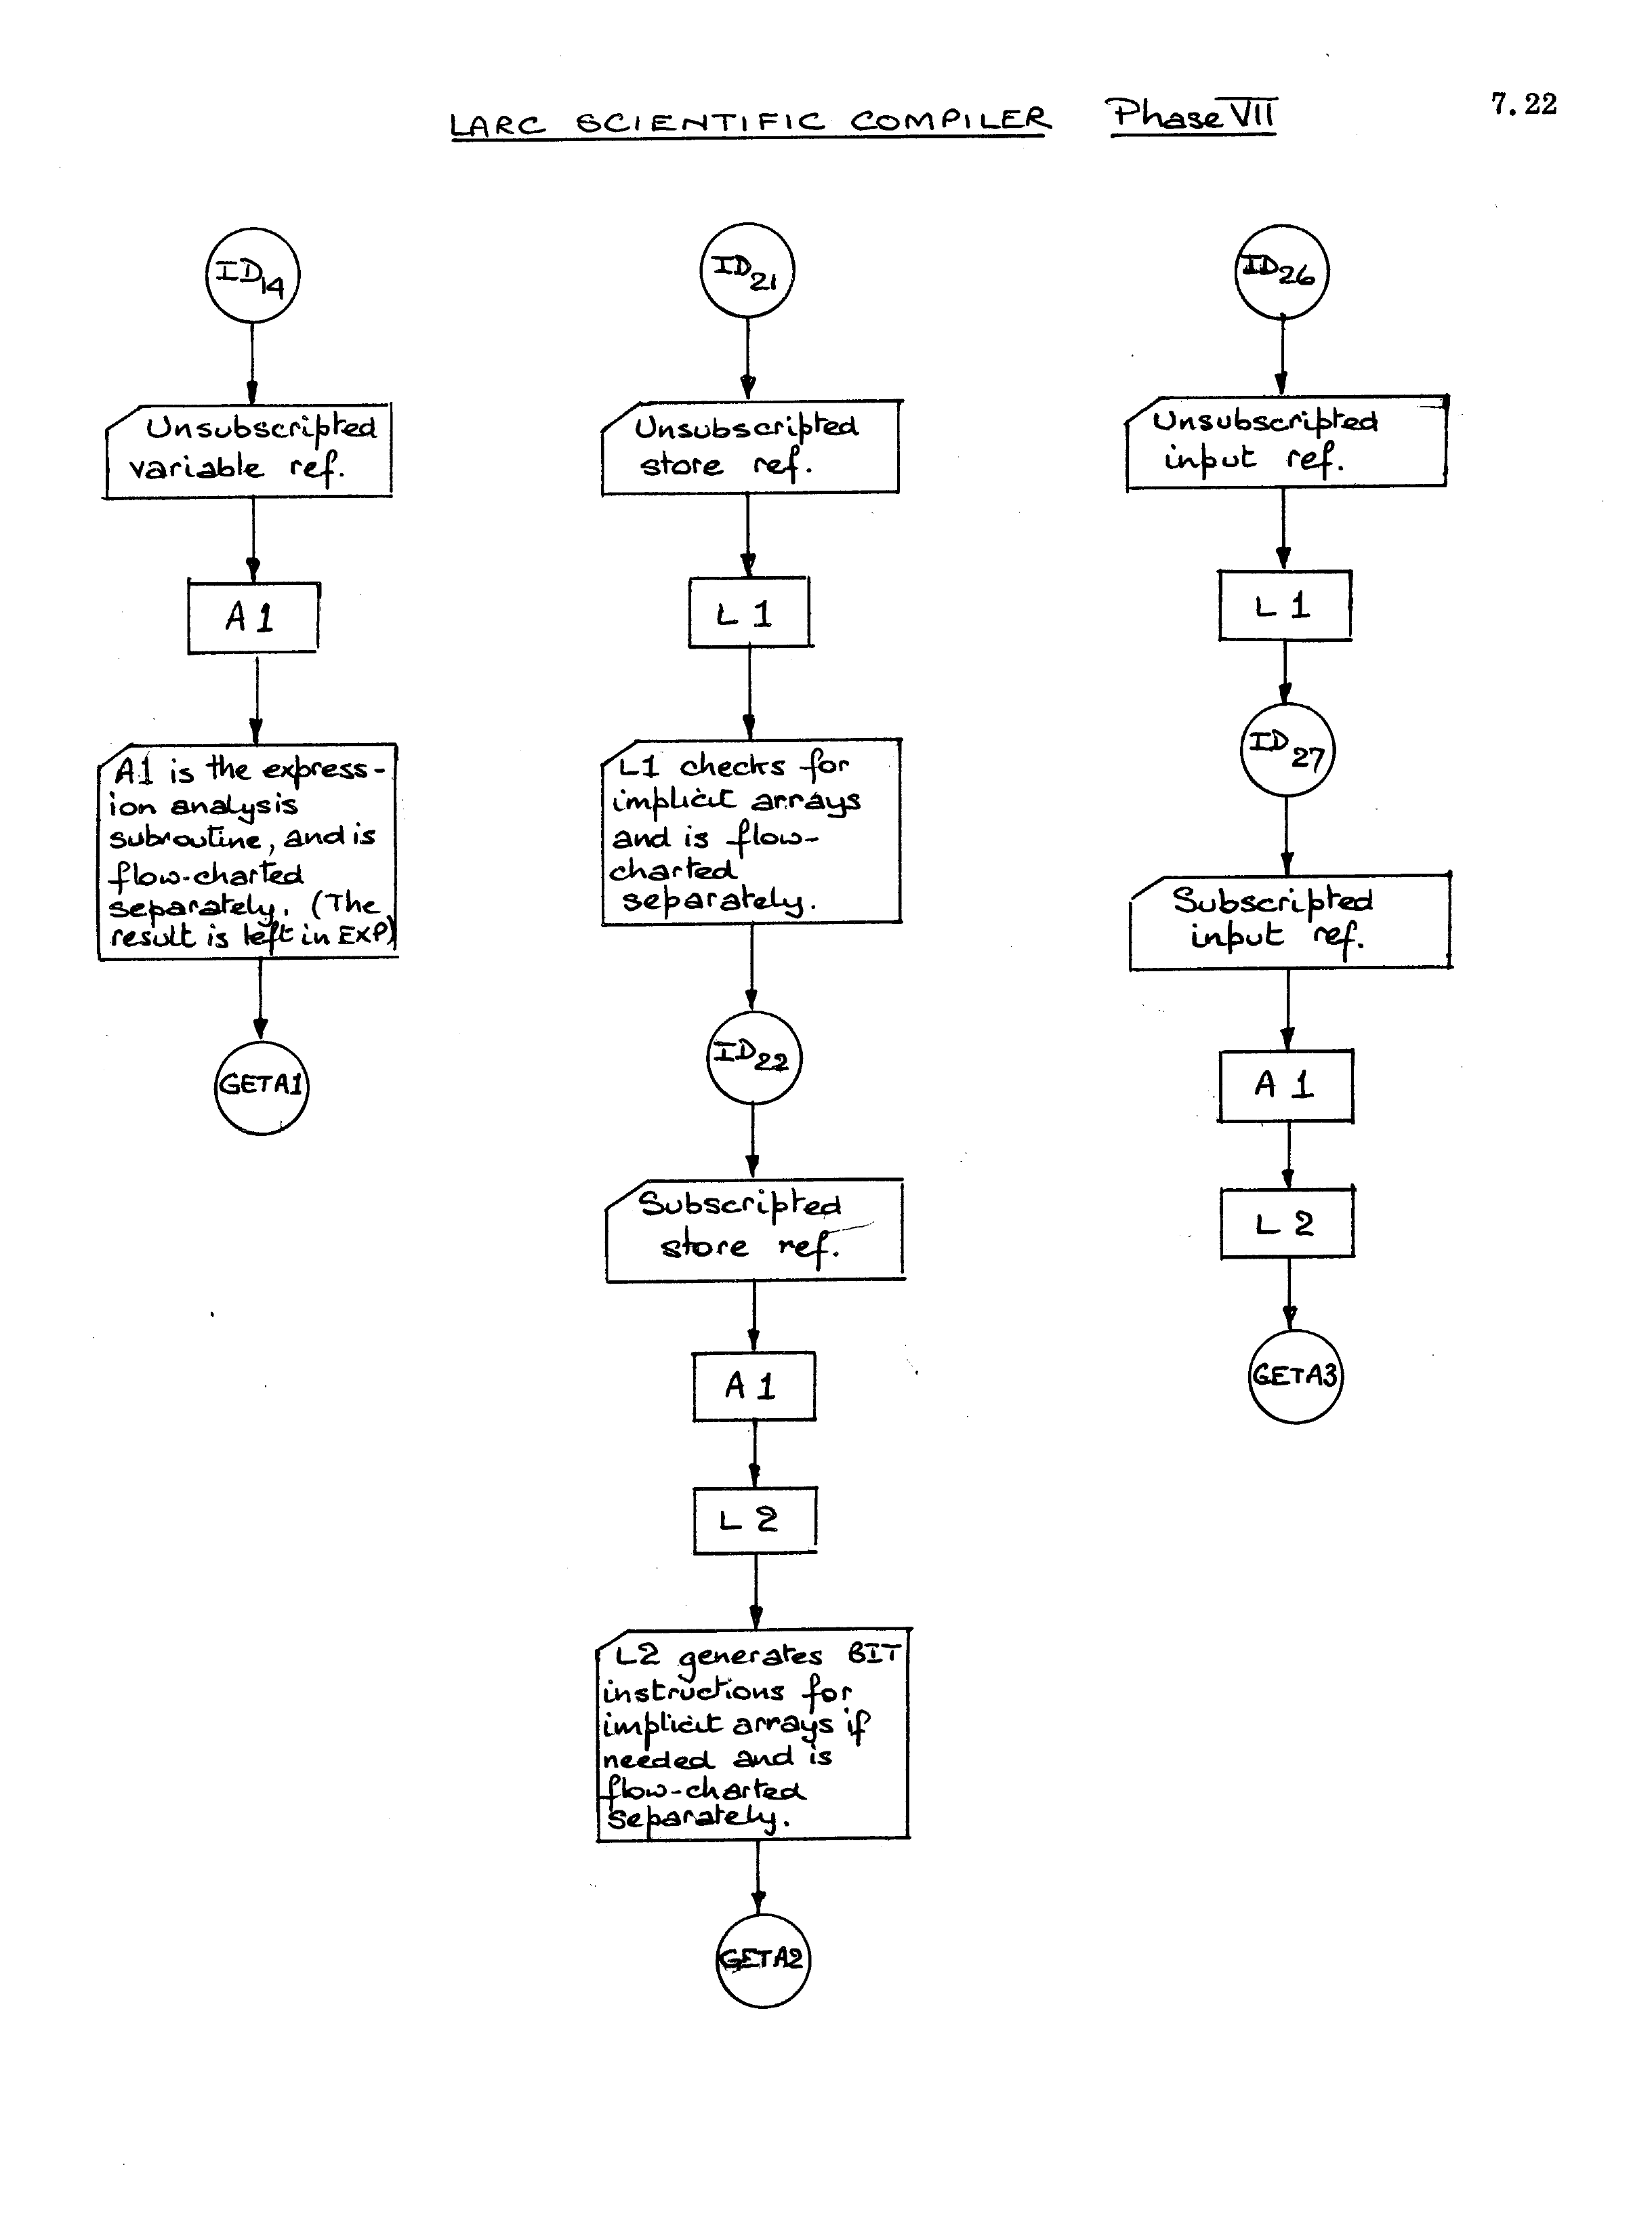 LARC SCIENTIFIC COMPILER Phase VII
7.22
ID14
Unsubscripted
variable ref.
A1
A1 is the express-
ion analysis
subroutine, and is
flow-charted
separately. (The
result is left in EXP)
GETA1
ID21
Unsubscripted
store ref.
L1
L1 checks for
implicit arrays
and is flow-
charted
separately.
ID22
Subscripted
store ref.
A1
L2
L2 generates BIT
instructions for
implicit arrays if
needed and is
flow-charted
separately.
GETA2
ID26
Unsubscripted
input ref.
L1
ID27
Subscripted
input ref.
A1
L2
GETA3